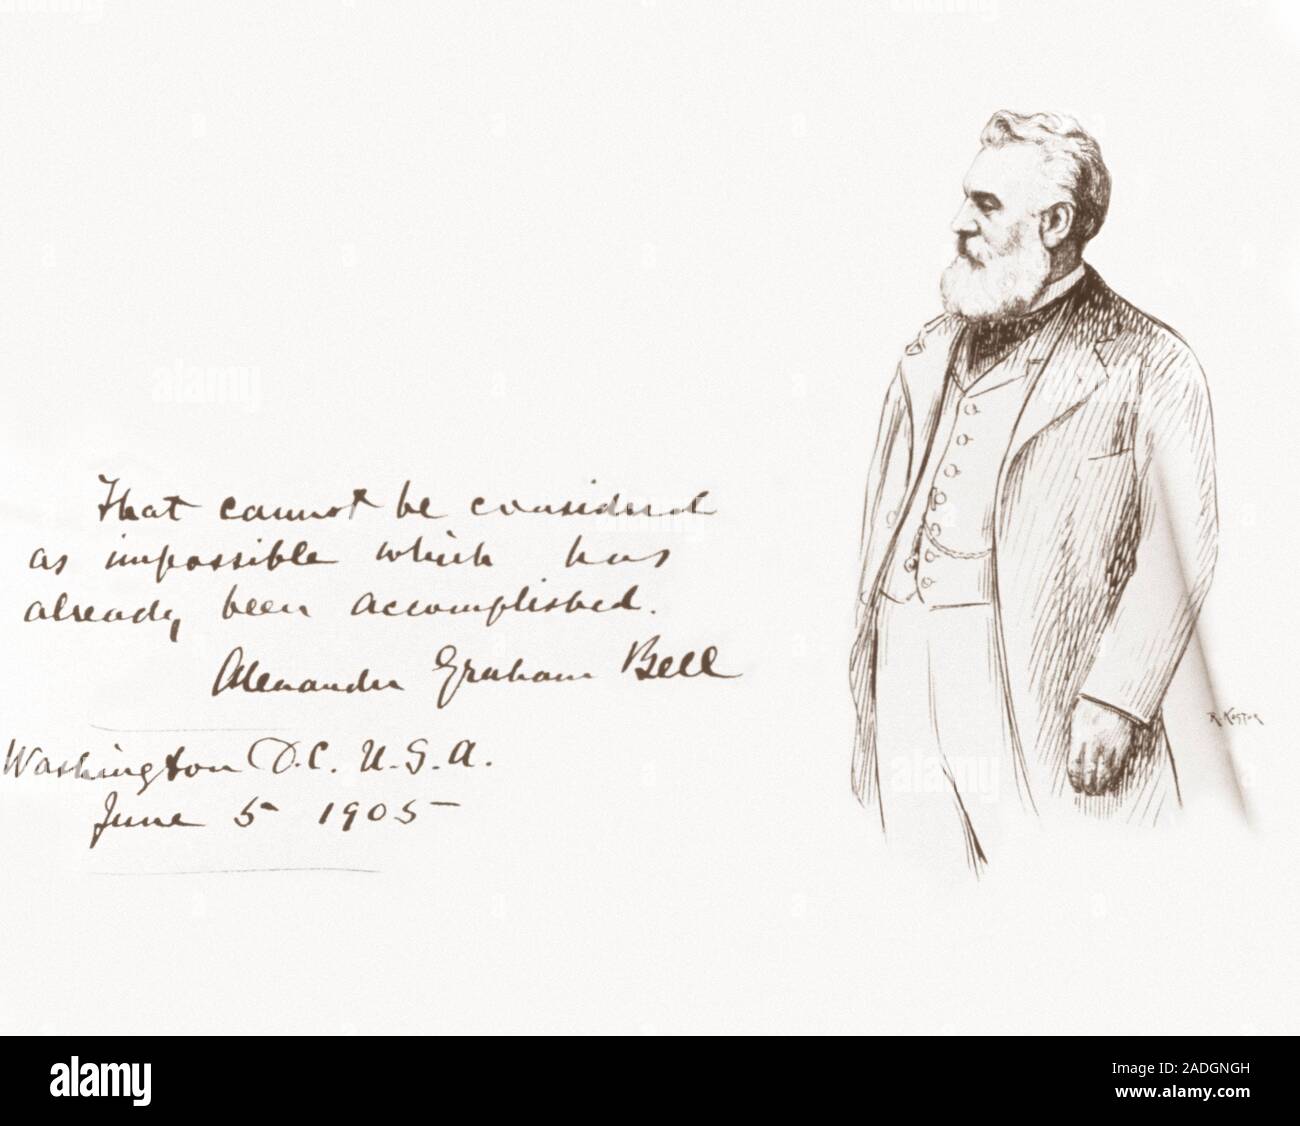 That cannot be considered
as impossible which has
already been accomplished.
Alexander Graham Bell
Washington D.C. U.S.A.
June 5 1905
R. Kastor
alamy
alamy
alamy
alamy
Image ID: 2ADGNGH
www.alamy.com